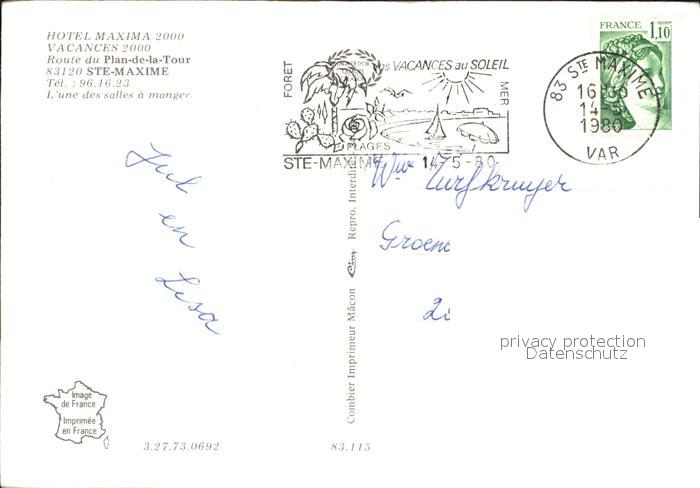 HOTEL MAXIMA 2000
VACANCES 2000
Route du Plan-de-la-Tour
83120 STE-MAXIME
Tél. : 96.16.23
L'une des salles à manger
FORET
VACANCES au SOLEIL
MER
PLAGES
STE-MAXIME 14-5-80
FRANCE
1,10
83 STE MAXIME
16H30
14
1980
VAR
Jul
en
Lisa
Groen
Combier Imprimeur Mâcon Cim Repro. Interdite
privacy protection
Datenschutz
Image
de France
Imprimée
en France
3.27.73.0692
83.115